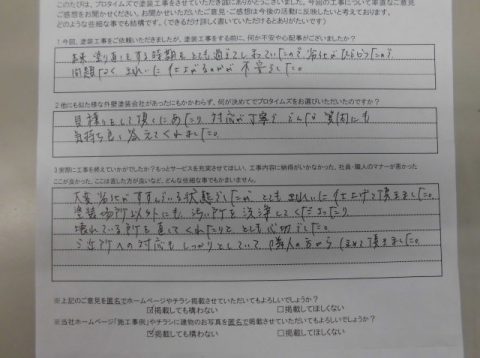 このたびは、プロタイムズで塗装工事をさせていただき誠にありがとうございました。今回の工事について率直なご意見
ご感想をお聞かせください。お聞かせいただいたご意見・ご感想は今後の活動に反映したいと考えております。
どのような些細な事でも結構です。(できるだけ詳しく書いていただけるとありがたいです)
1 今回、塗装工事をご依頼いただきましたが、塗装工事をする前に、何か不安や心配事がございましたか?
本来、塗り直しをする時期をとても過ぎてしまっていたので、劣化がひどかったので、
問題なく、きれいに仕上がるのかが不安でした。
2 他にも似た様な外壁塗装会社があったにもかかわらず、何が決めてでプロタイムズをお選びいただいたのですか?
見積りをして頂くにあたり、対応が丁寧で、どんな質問にも
気持ち良く答えてくれました。
3 実際に工事を終えていかがでしたか?もっとサービスを充実させてほしい、工事内容に納得がいかなかった、社員・職人のマナーが悪かった
ここが良かった、ここは直した方が良いなど、どんな些細な事でもかまいません。
大変劣化がすすんでいる状態でしたが、とてもきれいに仕上げて頂きました。
塗装場所以外にも、汚い所を洗浄してくださったり
壊れている所を直してくれたりと、とても親切でした。
ご近所への対応もしっかりとしていて、隣人の方からほめて頂きました。
※上記のご意見を匿名でホームページやチラシ掲載させていただいてもよろしいでしょうか?
☑掲載しても構わない □掲載してほしくない
※当社ホームページ「施工事例」やチラシに建物のお写真を匿名で掲載させていただいてもよろしいでしょうか?
☑掲載しても構わない □掲載してほしくない